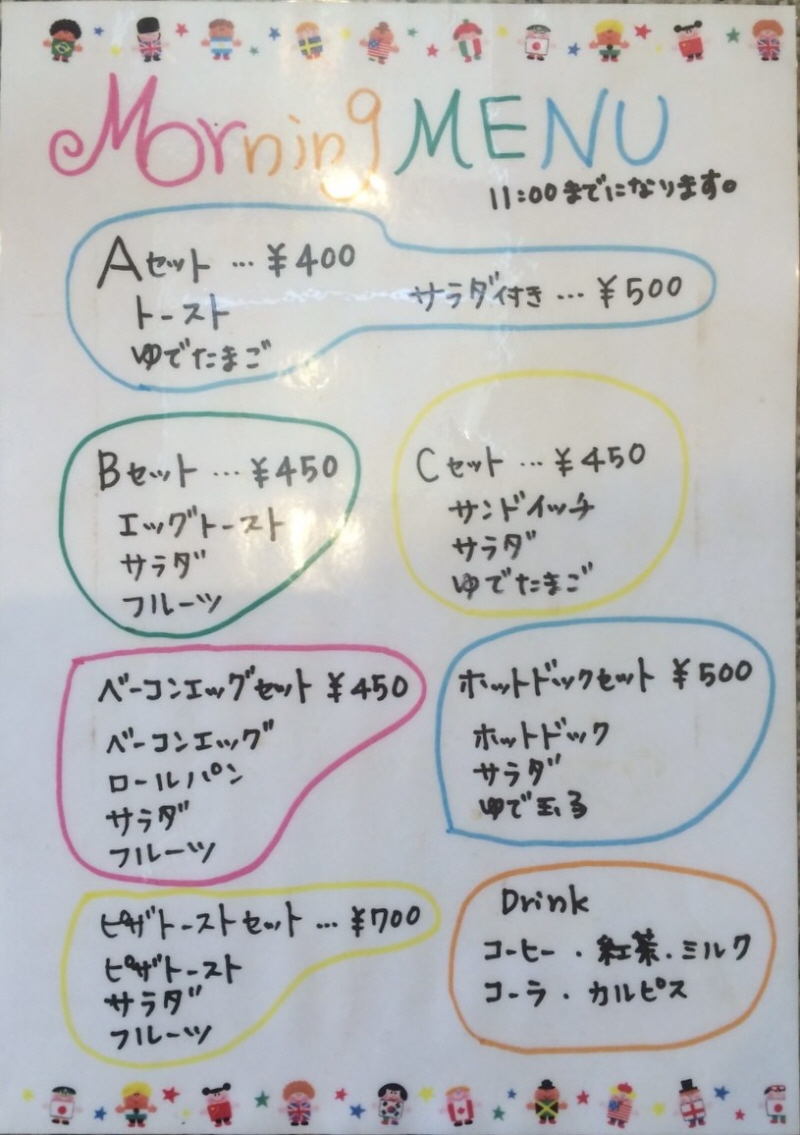 Morning MENU
11:00までになります。
Aセット…¥400
トースト
ゆでたまご
サラダ付き…¥500
Bセット…¥450
エッグトースト
サラダ
フルーツ
Cセット…¥450
サンドイッチ
サラダ
ゆでたまご
ベーコンエッグセット ¥450
ベーコンエッグ
ロールパン
サラダ
フルーツ
ホットドックセット ¥500
ホットドック
サラダ
ゆで玉子
ピザトーストセット…¥700
ピザトースト
サラダ
フルーツ
Drink
コーヒー・紅茶・ミルク
コーラ・カルピス